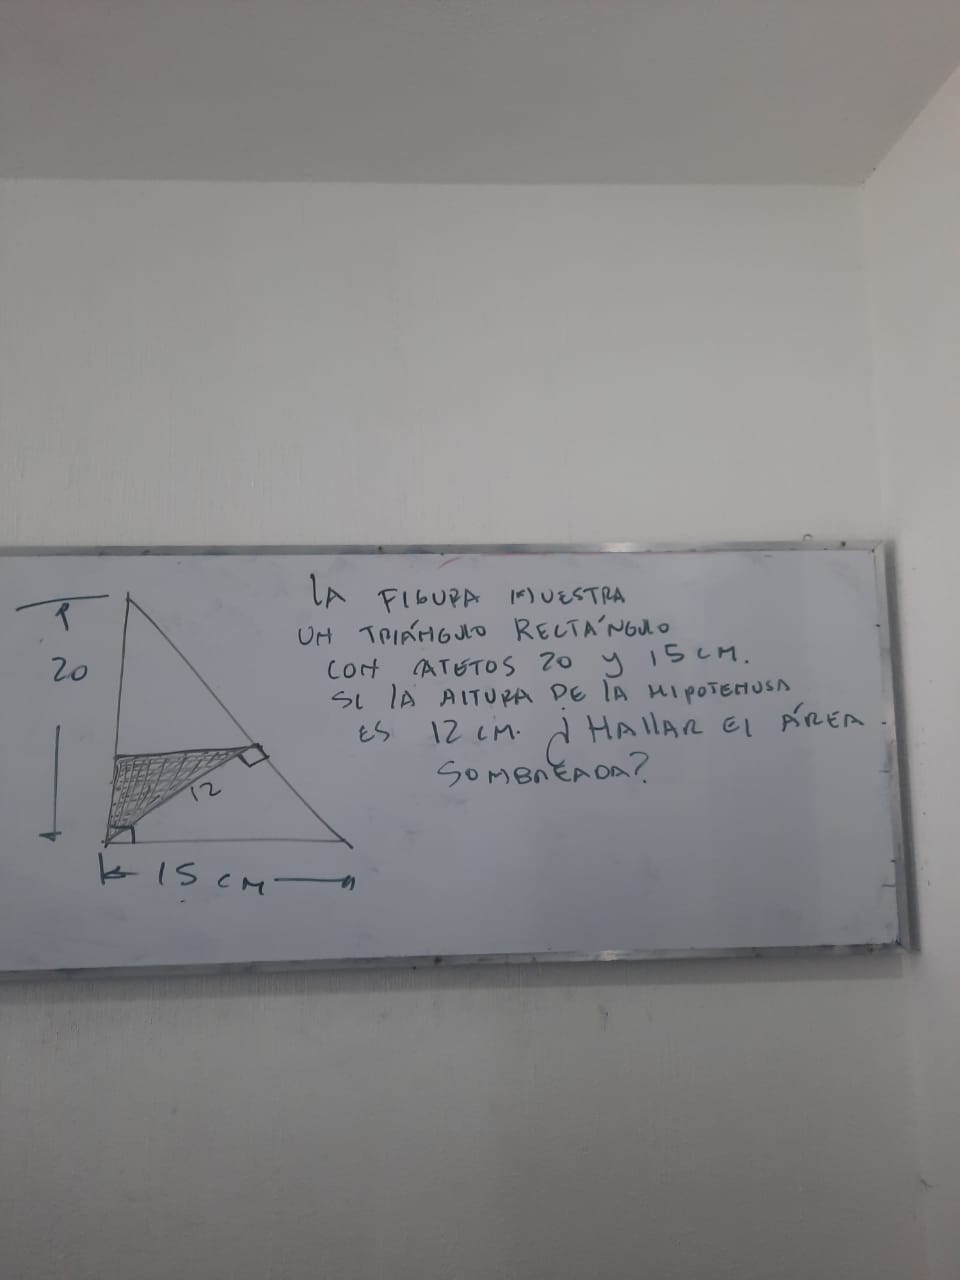 LA FIGURA MUESTRA
UN TRIÁNGULO RECTÁNGULO
CON CATETOS 20 y 15 CM.
SI LA ALTURA DE LA HIPOTENUSA
ES 12 CM. ¿HALLAR EL ÁREA
SOMBREADA?
20
12
15 CM